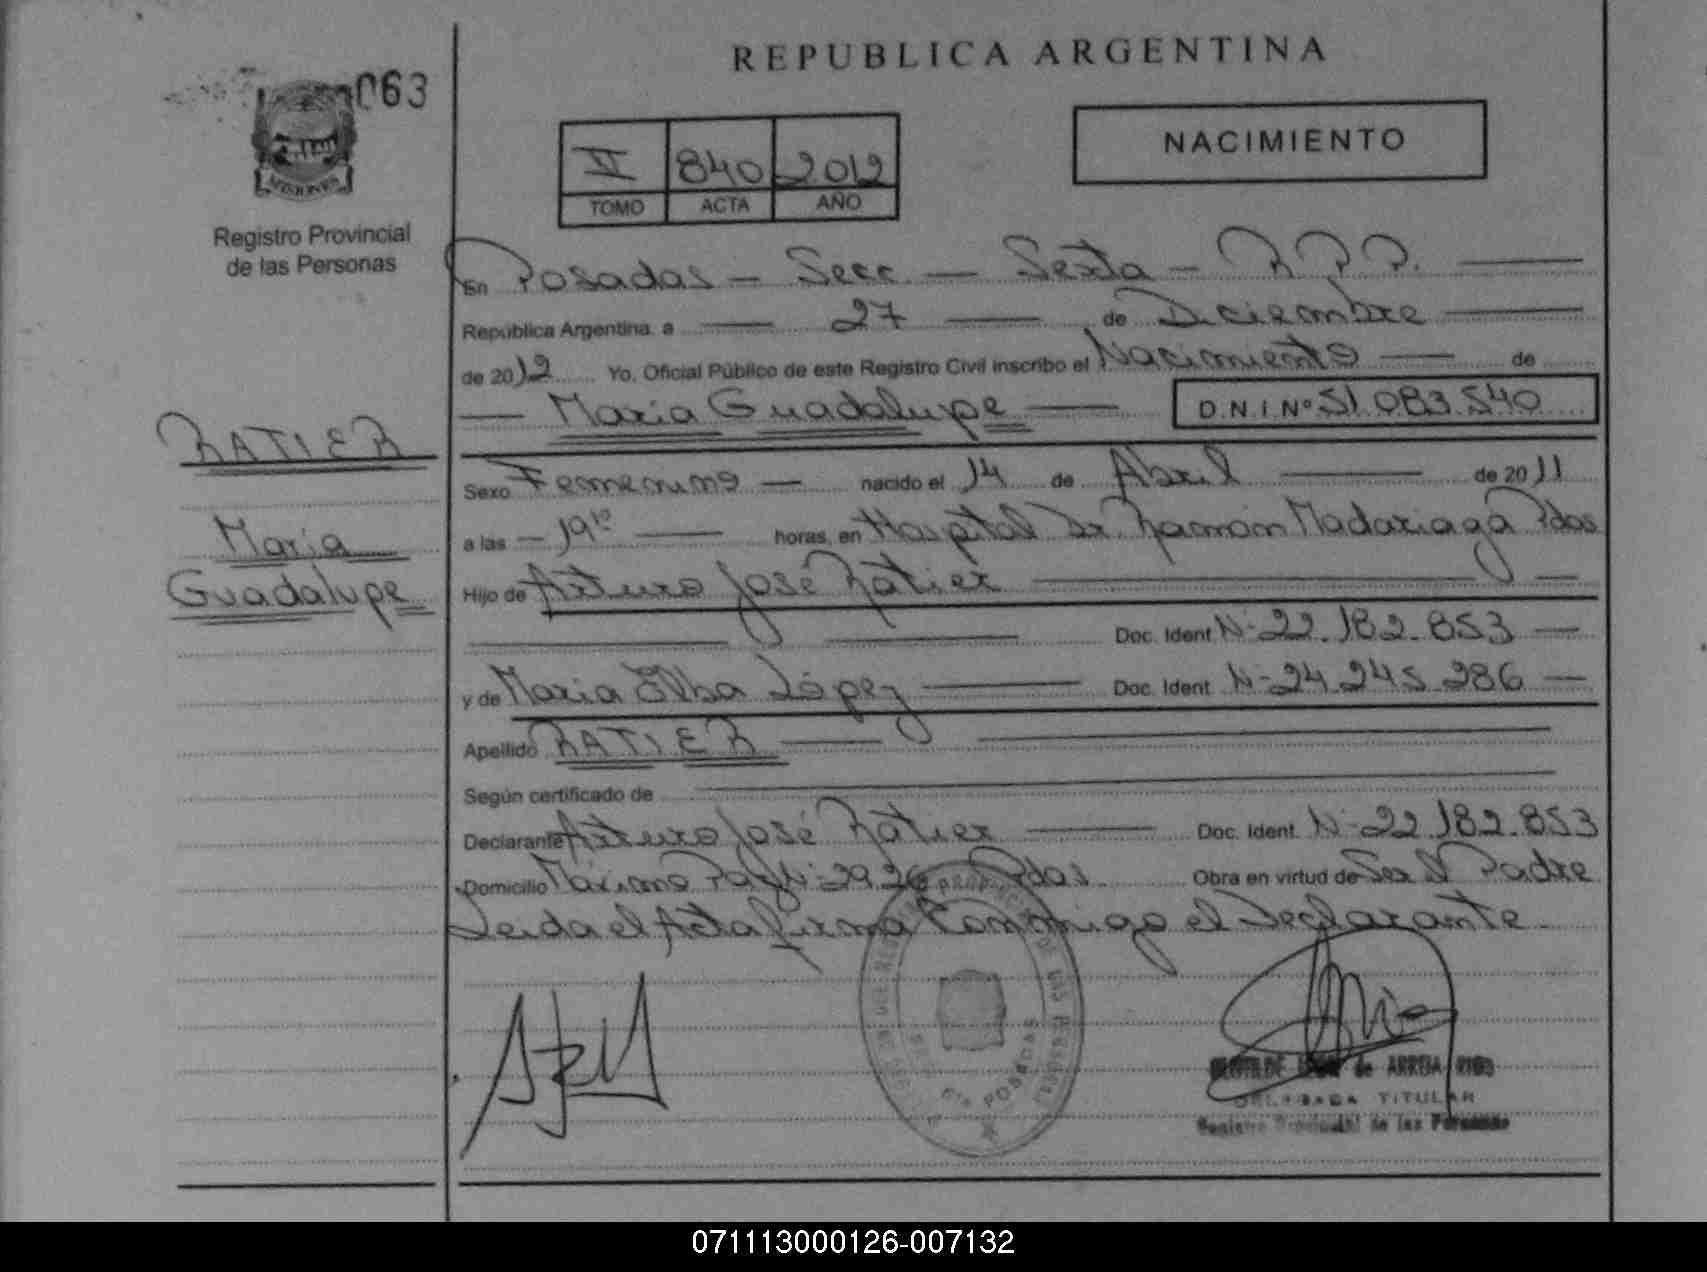 063
REPUBLICA ARGENTINA
NACIMIENTO
VI 840 2012
TOMO ACTA AÑO
MISIONES
Registro Provincial
de las Personas
En Posadas - Secc. - Sexta - R.P.P.
República Argentina. a 27 de Diciembre
de 2012 Yo, Oficial Público de este Registro Civil inscribo el Nacimiento de
Maria Guadalupe D.N.I.Nº 51.083.540
RATIER
Maria
Guadalupe
Sexo Femenino nacido el 14 de Abril de 2011
a las 19 10 horas, en Hospital Dr. Ramón Madariaga Pdas
Hijo de Arturo José Ratier
Doc. Ident. Nº 22.182.853
y de Maria Elba López Doc. Ident. Nº 24.245.286
Apellido RATIER
Según certificado de
Declarante Arturo José Ratier Doc. Ident. Nº 22.182.853
Domicilio Máximo 2926 Pdas. Obra en virtud de Ser el Padre
Leida el Acta firma Conmigo el Declarante.
POSADAS
de ARREJA
DELEGADA TITULAR
Registro Provincial de las Personas
071113000126-007132